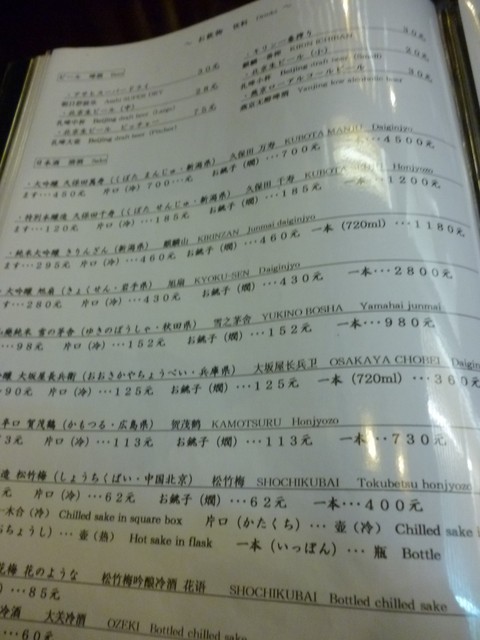 ～ お飲物 饮料 Drinks ～
ビール 啤酒 Beer
・アサヒスーパードライ 30元
朝日舒波乐 Asahi SUPER DRY
・北京生ビール (中)
札啤中杯 Beijing draft beer (Large)
・北京生ビール ピッチャー 75元
札啤大扎 Beijing draft beer (Pitcher)
・キリン一番搾り 30元
麒麟一番榨 KIRIN ICHIBAN
・北京生ビール (小) 20元
札啤小杯 Beijing draft beer (Small)
・燕京ローアルコールビール 30元
燕京无醇啤酒 Yanjing low alcoholic beer
日本酒 清酒 Sake
・大吟醸 久保田萬寿 (くぼた まんじゅ・新潟県) 久保田 万寿 KUBOTA MANJU Daiginjyo
ます…450元 片口 (冷) 700…元 お銚子 (燗) …700元 一本…4500元
・特別本醸造 久保田千寿 (くぼた せんじゅ・新潟県) 久保田 千寿 KUBOTA Honjyozo
ます…120元 片口 (冷) …185元 お銚子 (燗) …185元 一本…1200元
・純米大吟醸 きりんざん (新潟県) 麒麟山 KIRINZAN Junmai daiginjyo
ます…295元 片口 (冷) …460元 お銚子 (燗) …460元 一本 (720ml) …1180元
・大吟醸 旭扇 (きょくせん・岩手県) 旭扇 KYOKU-SEN Daiginjyo
ます…280元 片口 (冷) …430元 お銚子 (燗) …430元 一本…2800元
純米 雪の茅舎 (ゆきのぼうしゃ・秋田県) 雪之茅舍 YUKINO BOSHA Yamahai junmai
…98元 片口 (冷) …152元 お銚子 (燗) …152元 一本…980元
大坂屋長兵衛 (おおさかやちょうべい・兵庫県) 大坂屋长兵卫 OSAKAYA CHOBEI Daigin
…90元 片口 (冷) …125元 お銚子 (燗) …125元 一本 (720ml) …360元
辛口 賀茂鶴 (かもつる・広島県) 贺茂鹤 KAMOTSURU Honjyozo
3元 片口 (冷) …113元 お銚子 (燗) …113元 一本…730元
造 松竹梅 (しょうちくばい・中国北京) 松竹梅 SHOCHIKUBAI Tokubetsu honjyozo
元 片口 (冷) …62元 お銚子 (燗) …62元 一本…400元
一木合 (冷) Chilled sake in square box 片口 (かたくち) … 壶 (冷) Chilled sake i
おちょうし) … 壶 (热) Hot sake in flask 一本 (いっぽん) … 瓶 Bottle
花のような 松竹梅吟酿冷酒 花语 SHOCHIKUBAI Bottled chilled sake
…85元
冷酒 大关冷酒 OZEKI Bottled chilled sake
…60元